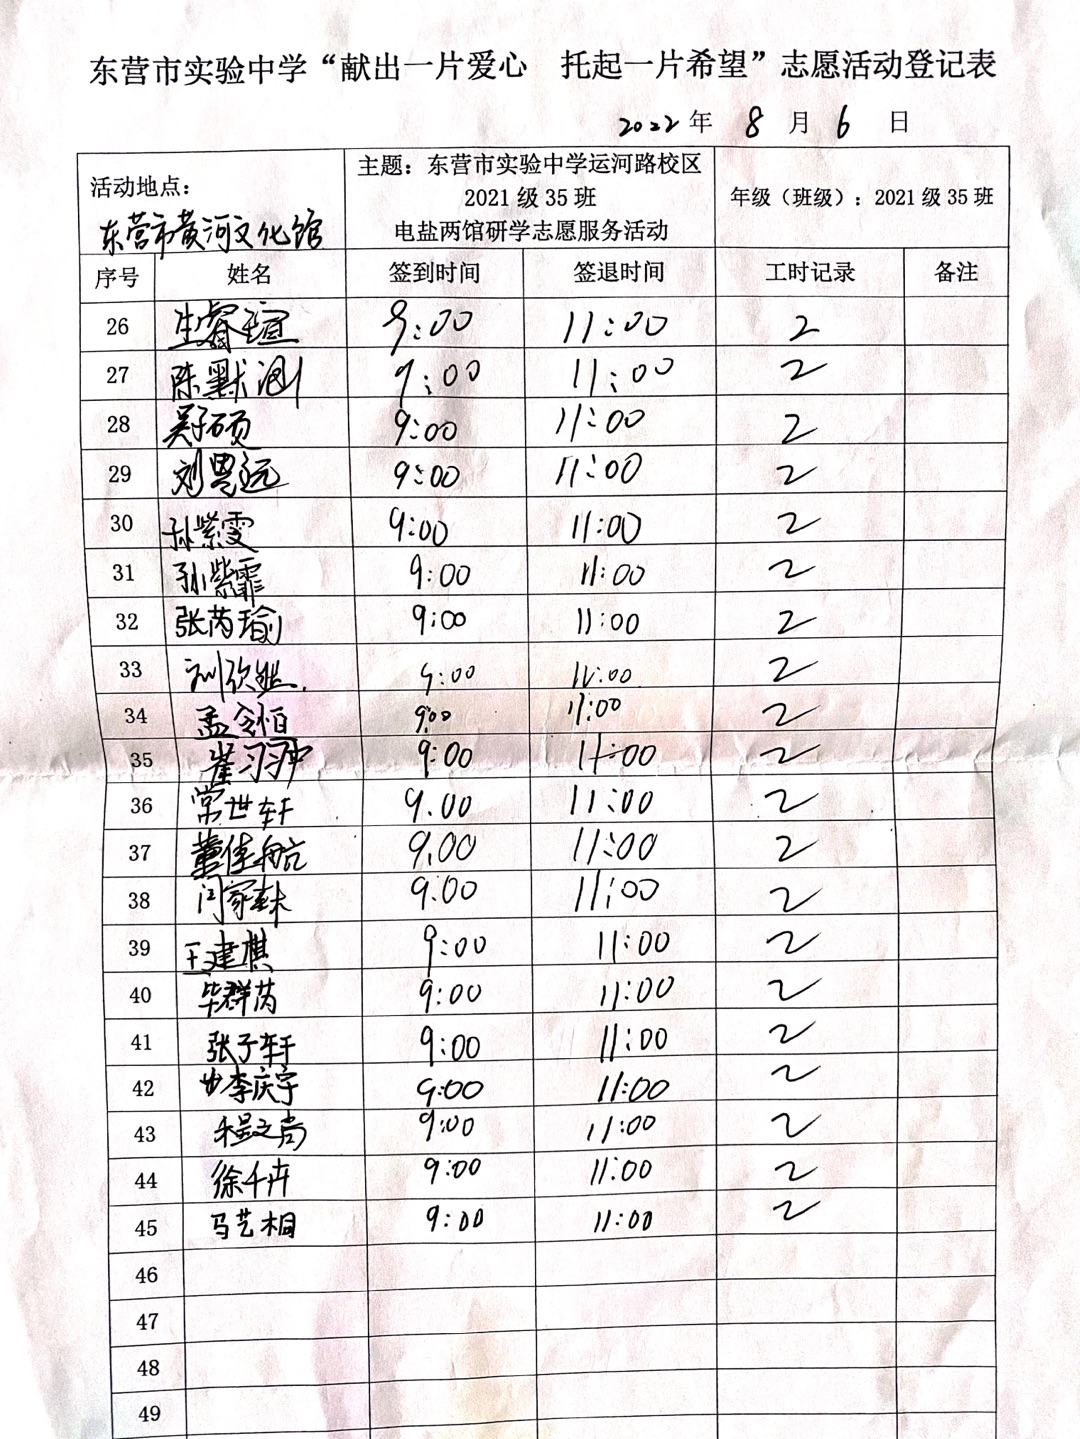 东营市实验中学“献出一片爱心 托起一片希望”志愿活动登记表
2022年 8 月 6 日
活动地点：
东营市黄河文化馆
主题：东营市实验中学运河路校区
2021级35班
电盐两馆研学志愿服务活动
年级（班级）：2021级35班
序号 姓名 签到时间 签退时间 工时记录 备注
26 生睿瑄 9:00 11:00 2
27 陈默涵 9:00 11:00 2
28 吴子硕 9:00 11:00 2
29 刘思远 9:00 11:00 2
30 孙紫雯 9:00 11:00 2
31 孙紫霏 9:00 11:00 2
32 张芮瑜 9:00 11:00 2
33 刘欣然. 9:00 11:00 2
34 孟令恒 9:00 11:00 2
35 崔习 9:00 11:00 2
36 常世轩 9.00 11:00 2
37 董佳航 9.00 11:00 2
38 闫家 9:00 11:00 2
39 王建棋 9:00 11:00 2
40 毕群芮 9:00 11:00 2
41 张子轩 9:00 11:00 2
42 李庆宇 9:00 11:00 2
43 程文尚 9:00 11:00 2
44 徐千卉 9:00 11:00 2
45 马艺桐 9:00 11:00 2
46
47
48
49